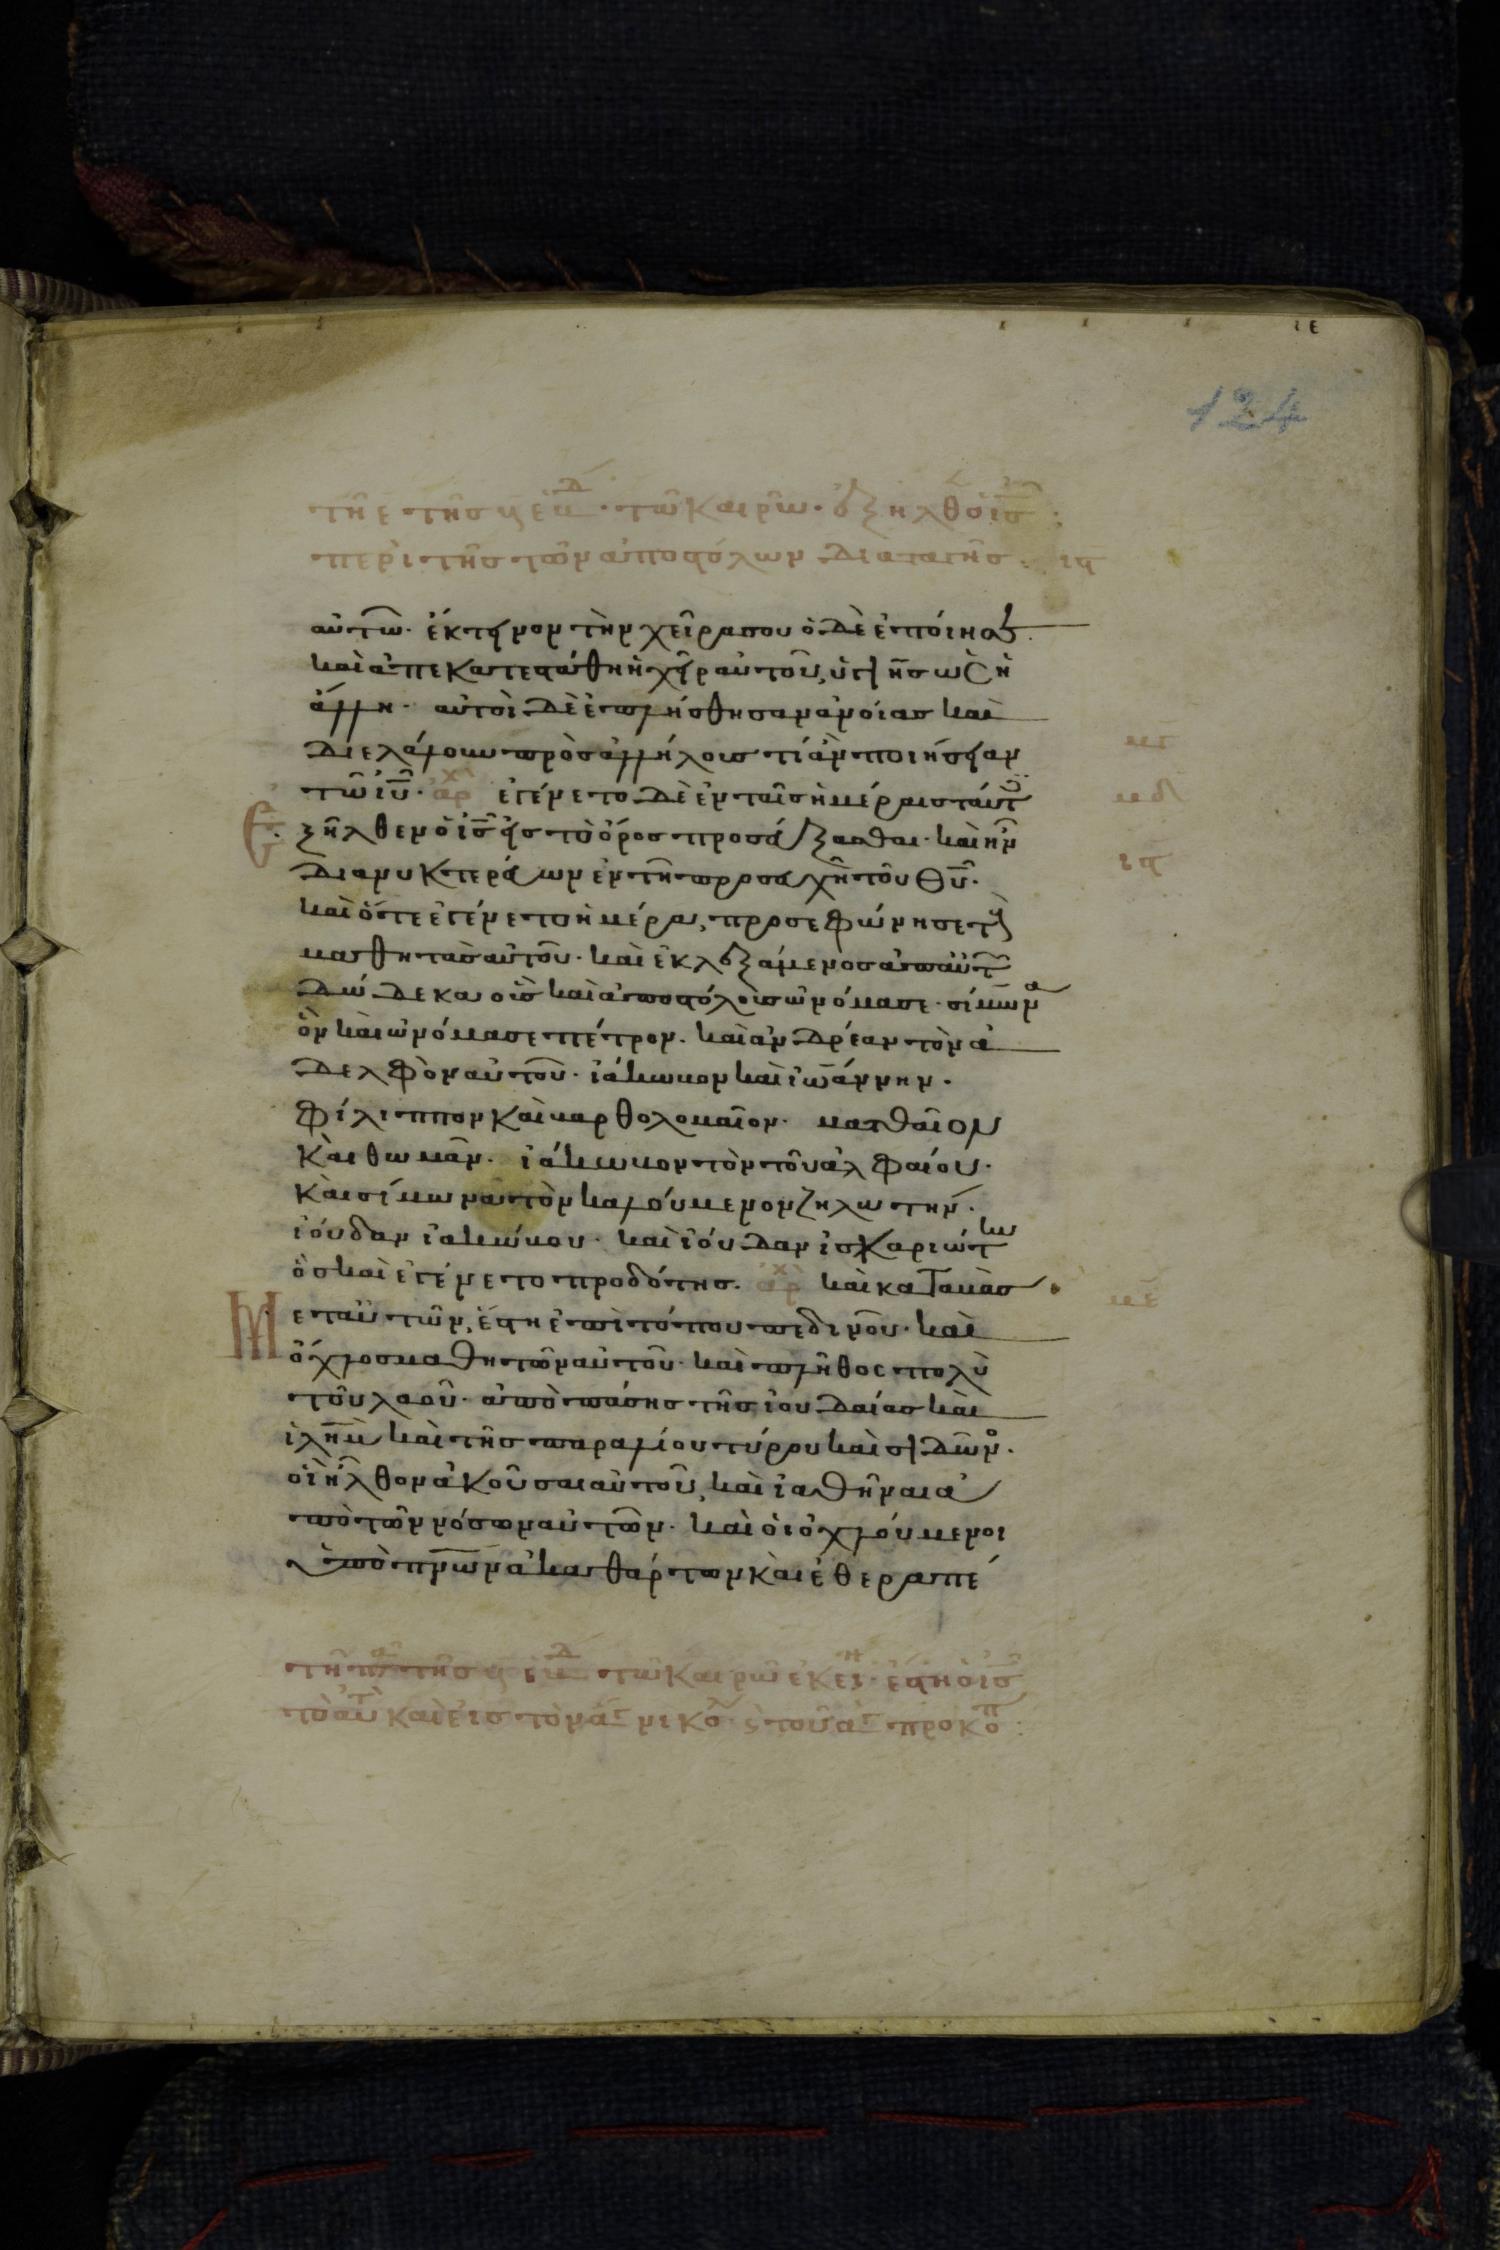 ιε
124
τῆ ε τῆς ς ἑβδ · τῶ καιρῶ · ἐξῆλθ ὁ ἰς :
περὶ τῆς τῶν ἀποστόλων διαταγῆς : ιδ
αὐτῶ · ἔκτεινον τὴν χεῖρα σου ὁ δὲ ἐποίησεν ·
καὶ ἀπεκατεστάθη ἡ χεὶρ αὐτοῦ, ὑγιὴς ὡς ἡ
ἄλλη · αὐτοὶ δὲ ἐπλήσθησαν ἀνοίας καὶ
διελάλουν πρὸς ἀλλήλους τί ἂν ποιήσειαν
τῶ ἰυ · ἀρχ ἐγένετο δὲ ἐν ταῖς ἡμέραις ταύτ
ξῆλθεν ὁ ἰς εἰς τὸ ὄρος προσεύξασθαι · καὶ ἦν
διανυκτερεύων ἐν τῆ προσευχῆ τοῦ θυ ·
καὶ ὅτε ἐγένετο ἡμέρα, προσεφώνησε τοὺς
μαθητὰς αὐτοῦ · καὶ ἐκλεξάμενος ἀπ αὐτῶν
δώδεκα οὓς καὶ ἀποστόλους ὠνόμασε · σίμωνα
ὃν καὶ ὠνόμασε πέτρον · καὶ ἀνδρέαν τὸν ἀ
δελφὸν αὐτοῦ · ἰάκωβον καὶ ἰωάννην ·
φίλιππον καὶ βαρθολομαῖον · ματθαῖον
καὶ θωμᾶν · ἰάκωβον τὸν τοῦ ἀλφαίου ·
καὶ σίμωνα τὸν καλούμενον ζηλωτήν ·
ἰούδαν ἰακώβου · καὶ ἰούδαν ἰσκαριώτ
ὃς καὶ ἐγένετο προδότης · ἀρχ καὶ καταβὰς
Μετ αὐτῶν, ἔστη ἐπὶ τόπου πεδινοῦ · καὶ
ὄχλος μαθητῶν αὐτοῦ · καὶ πλῆθος πολὺ
τοῦ λαοῦ · ἀπὸ πάσης τῆς ἰουδαίας καὶ
ἰλημ καὶ τῆς παραλίου τύρου καὶ σιδῶνος ·
οἳ ἦλθον ἀκοῦσαι αὐτοῦ, καὶ ἰαθῆναι ἀ
πὸ τῶν νόσων αὐτῶν · καὶ οἱ ὀχλούμενοι
ὑπὸ πνων ἀκαθάρτων καὶ ἐθεραπεύ
τῶ καιρῶ ἐκεί · ἔστη ὁ ἰς
τὸ αὐτ καὶ εἰς τὸν ἅγ νικο · ς τοῦ ἁγ προκοπ :